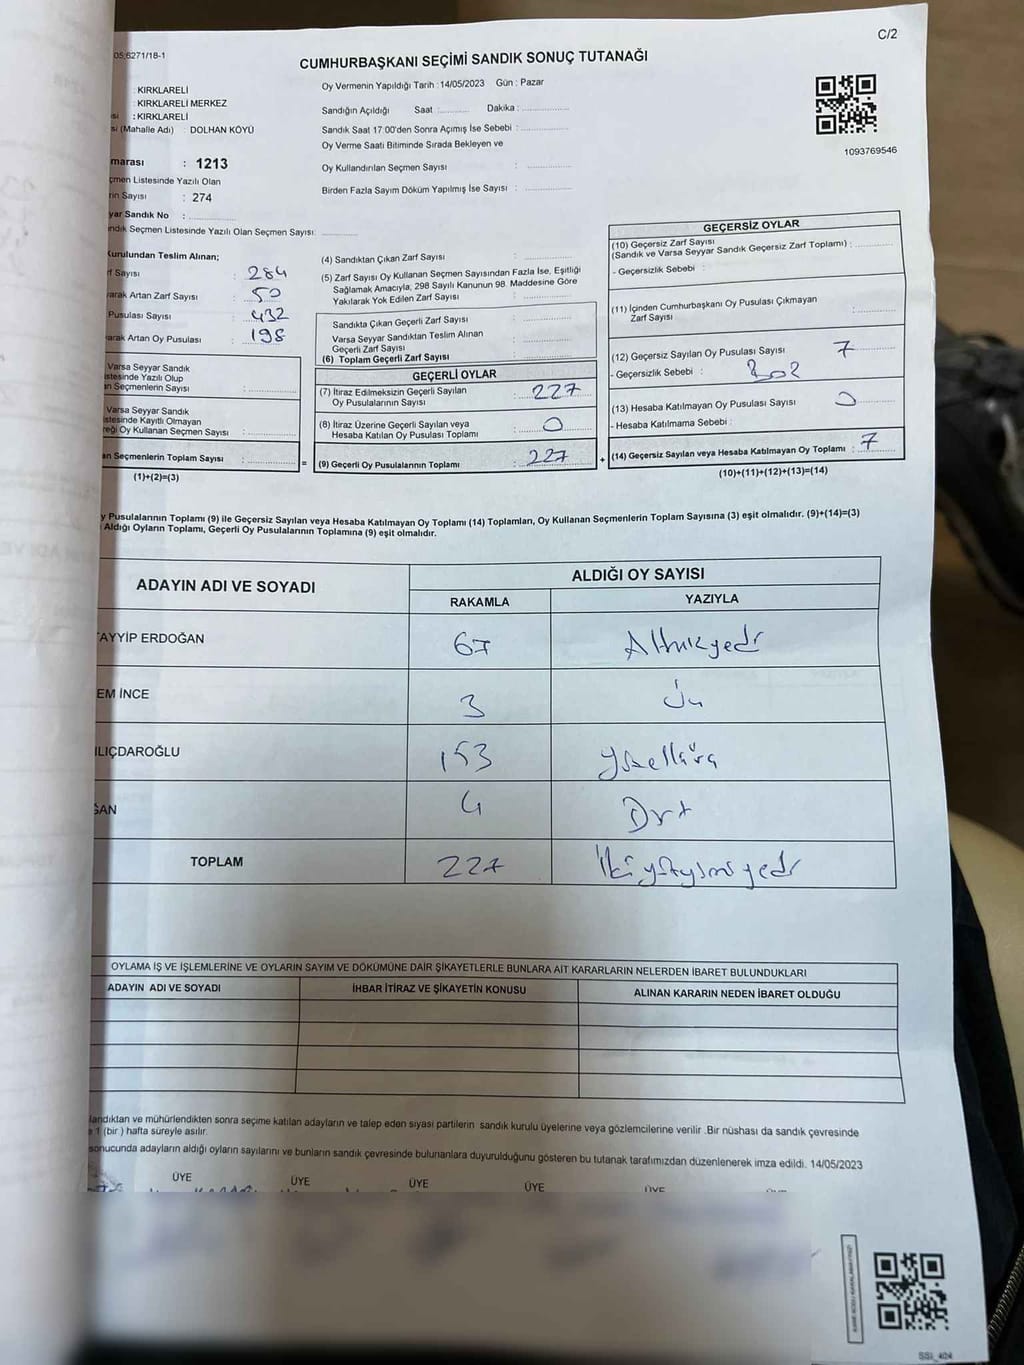 C/2
05.6271/18-1
CUMHURBAŞKANI SEÇİMİ SANDIK SONUÇ TUTANAĞI
: KIRKLARELİ
: KIRKLARELİ MERKEZ
: KIRKLARELİ
si (Mahalle Adı) : DOLHAN KÖYÜ
marası : 1213
çmen Listesinde Yazılı Olan
rin Sayısı : 274
yar Sandık No :
ndık Seçmen Listesinde Yazılı Olan Seçmen Sayısı:
Oy Vermenin Yapıldığı Tarih :14/05/2023 Gün : Pazar
Sandığın Açıldığı Saat : Dakika :
Sandık Saat 17 00'den Sonra Açımış İse Sebebi :
Oy Verme Saati Bitiminde Sırada Bekleyen ve
Oy Kullandırılan Seçmen Sayısı :
Birden Fazla Sayım Döküm Yapılmış İse Sayısı :
1093769546
Kurulundan Teslim Alınan;
f Sayısı : 284
arak Artan Zarf Sayısı : 50
Pusulası Sayısı : 432
arak Artan Oy Pusulası : 198
Varsa Seyyar Sandık
istesinde Yazılı Olup
an Seçmenlerin Sayısı :
Varsa Seyyar Sandık
istesinde Kayıtlı Olmayan
reği Oy Kullanan Seçmen Sayısı :
an Seçmenlerin Toplam Sayısı :
(1)+(2)=(3)
(4) Sandıktan Çıkan Zarf Sayısı :
(5) Zarf Sayısı Oy Kullanan Seçmen Sayısından Fazla İse, Eşitliği
Sağlamak Amacıyla, 298 Sayılı Kanunun 98. Maddesine Göre
Yakılarak Yok Edilen Zarf Sayısı :
Sandıkta Çıkan Geçerli Zarf Sayısı :
Varsa Seyyar Sandıktan Teslim Alınan
Geçerli Zarf Sayısı :
(6) Toplam Geçerli Zarf Sayısı :
GEÇERLİ OYLAR
(7) İtiraz Edilmeksizin Geçerli Sayılan
Oy Pusulalarının Sayısı : 227
(8) İtiraz Üzerine Geçerli Sayılan veya
Hesaba Katılan Oy Pusulası Toplamı : 0
= (9) Geçerli Oy Pusulalarının Toplamı : 227 +
GEÇERSİZ OYLAR
(10) Geçersiz Zarf Sayısı
(Sandık ve Varsa Seyyar Sandık Geçersiz Zarf Toplamı) :
- Geçersizlik Sebebi :
(11) İçinden Cumhurbaşkanı Oy Pusulası Çıkmayan
Zarf Sayısı :
(12) Geçersiz Sayılan Oy Pusulası Sayısı : 7
- Geçersizlik Sebebi :
(13) Hesaba Katılmayan Oy Pusulası Sayısı : 0
- Hesaba Katılmama Sebebi :
(14) Geçersiz Sayılan veya Hesaba Katılmayan Oy Toplamı : 7
(10)+(11)+(12)+(13)=(14)
y Pusulalarının Toplamı (9) ile Geçersiz Sayılan veya Hesaba Katılmayan Oy Toplamı (14) Toplamları, Oy Kullanan Seçmenlerin Toplam Sayısına (3) eşit olmalıdır. (9)+(14)=(3)
Aldığı Oyların Toplamı, Geçerli Oy Pusulalarının Toplamına (9) eşit olmalıdır.
ADAYIN ADI VE SOYADI
ALDIĞI OY SAYISI
RAKAMLA YAZIYLA
AYYİP ERDOĞAN 67 Altmışyedi
EM İNCE 3 Üç
ILIÇDAROĞLU 153 Yüzelliüç
ĞAN 4 Dört
TOPLAM 227 İkiyüzyirmiyedi
OYLAMA İŞ VE İŞLEMLERİNE VE OYLARIN SAYIM VE DÖKÜMÜNE DAİR ŞİKAYETLERLE BUNLARA AİT KARARLARIN NELERDEN İBARET BULUNDUKLARI
ADAYIN ADI VE SOYADI İHBAR İTİRAZ VE ŞİKAYETİN KONUSU ALINAN KARARIN NEDEN İBARET OLDUĞU
landıktan ve mühürlendikten sonra seçime katılan adayların ve talep eden siyası partilerin sandık kurulu üyelerine veya gözlemcilerine verilir .Bir nüshası da sandık çevresinde
e 1 (bir ) hafta süreyle asılır.
sonucunda adayların aldığı oyların sayılarını ve bunların sandık çevresinde bulunanlara duyurulduğunu gösteren bu tutanak tarafımızdan düzenlenerek imza edildi. 14/05/2023
ÜYE ÜYE ÜYE ÜYE ÜYE